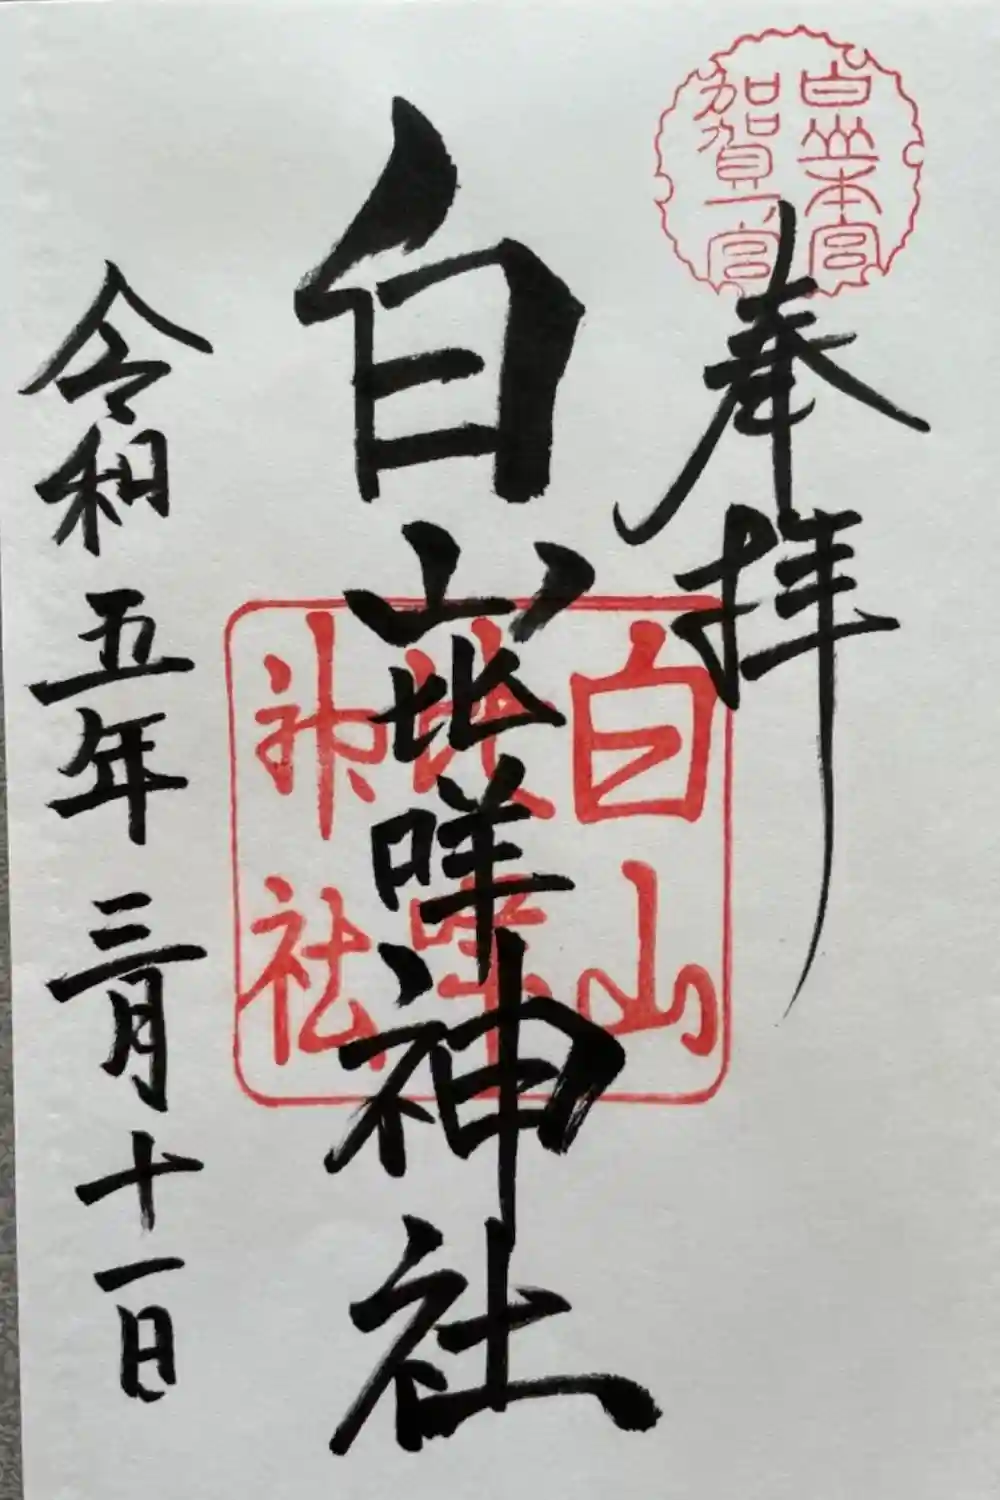 白山本宮
加賀一ノ宮
奉拝
白山比咩神社
白山
比咩
神社
令和五年三月十一日